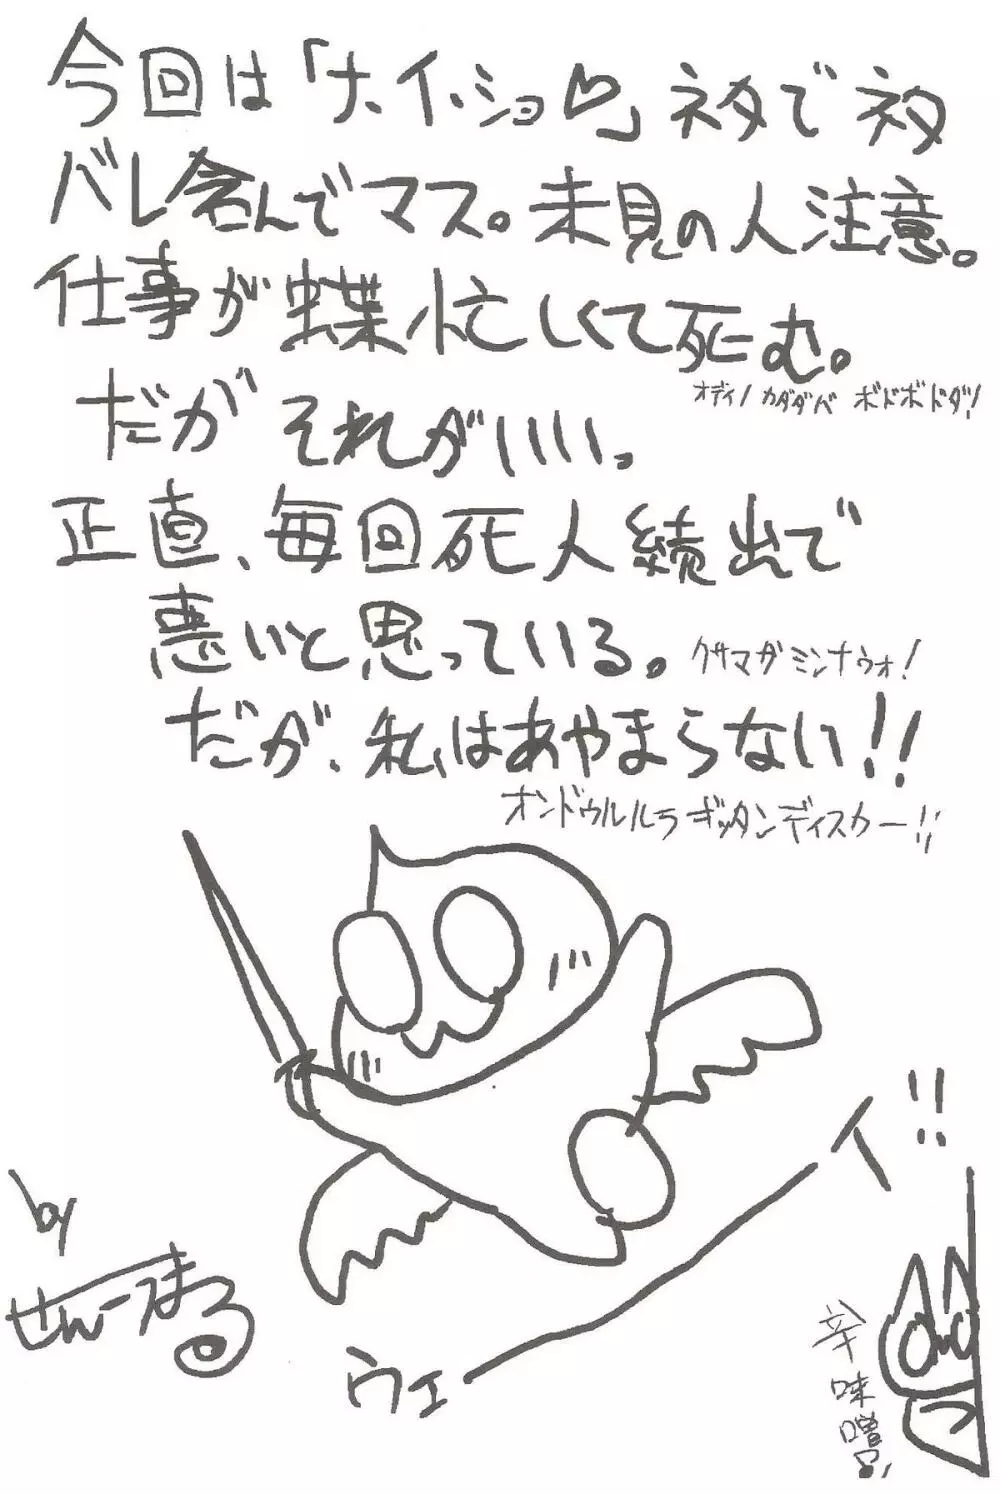 今回は「ナ、イ、ショ♡」ネタでネタ
バレ含んでマス。未見の人注意。
仕事が蝶忙しくて死む。
オディノ カダダベ ボドボドダ!
だがそれがいい。
正直、毎回死人続出で
悪いと思っている。
クサマガ ミンナウォ!
だが、私はあやまらない!!
オンドゥルルラギッタンディスカー!!
ウェーイ!!
by
せんーまる
辛味噌